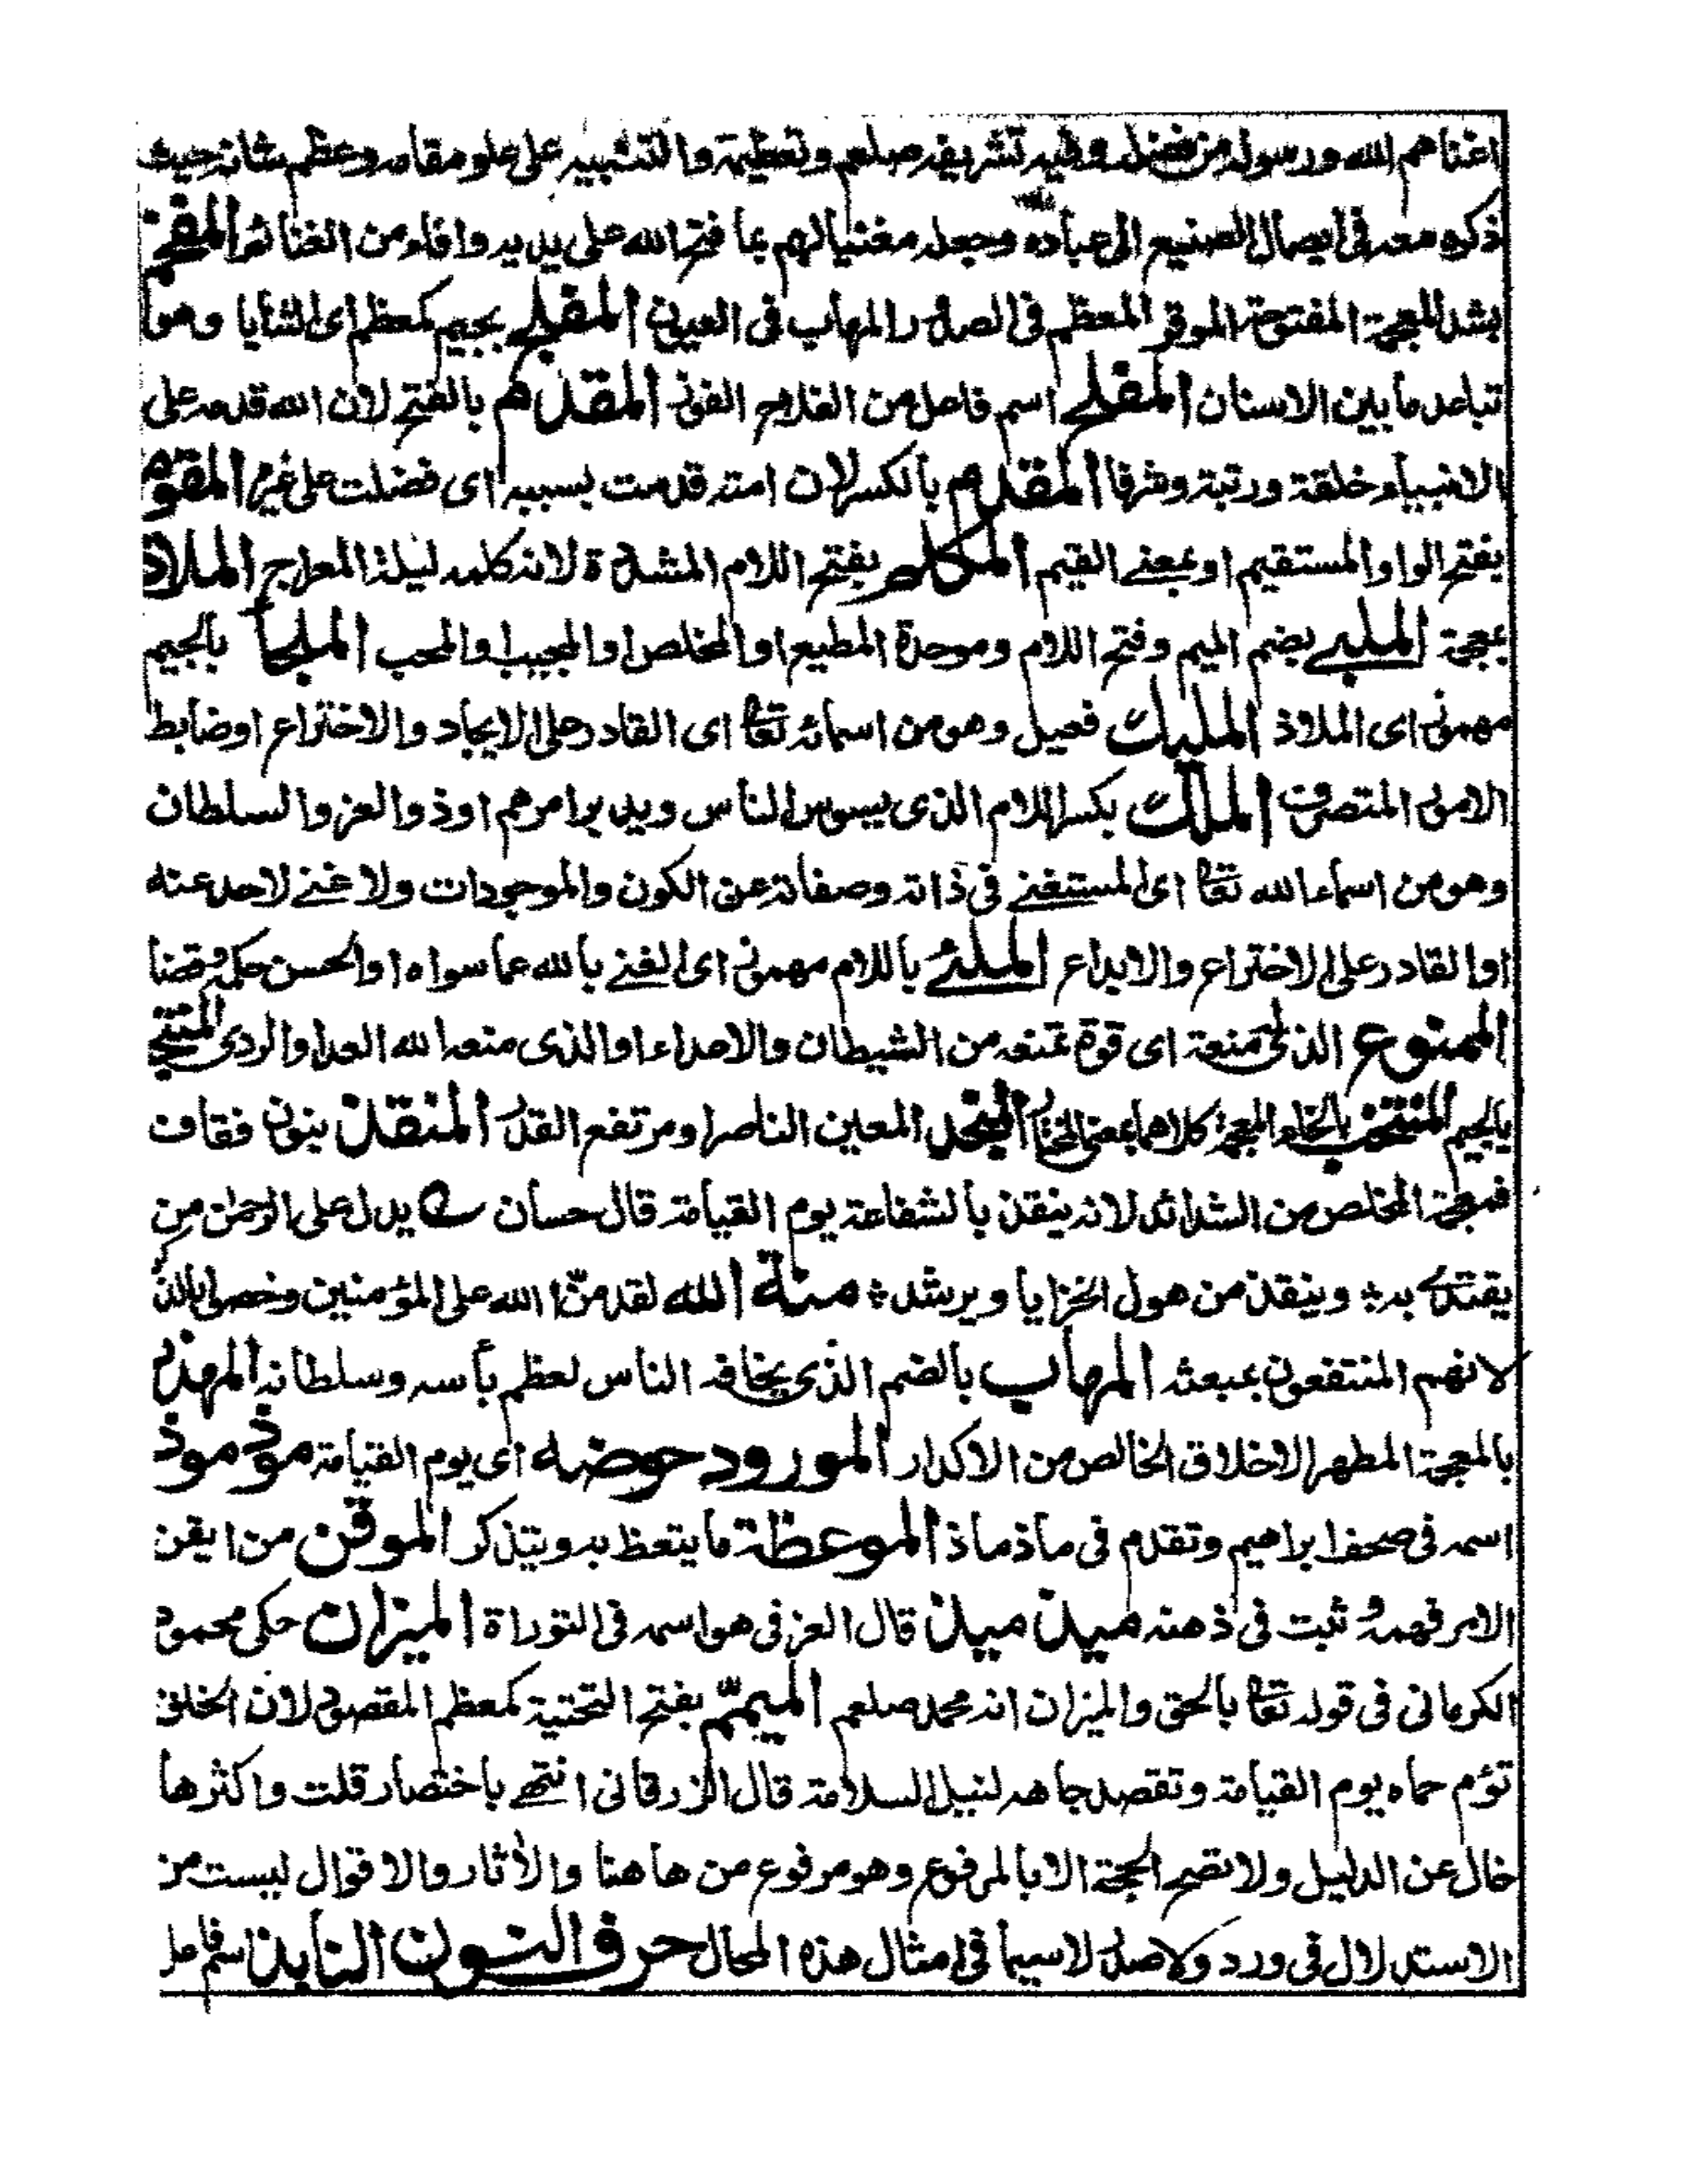 اغناهم الله ورسوله من فضله وفيه تشريفه صلعم وتعظيمه والتنبيه على علو مقامه وعظم شانه حيث
ذكره معه فى ايصال الصنيع الى عباده وجعله مغنيا لهم بما فتح الله على يديه وافاء من الغنائم المفخم
بشد المعجمة المفتوحة الموقر المعظم فى الصدور المهاب فى العيون المفلج بجيم كمعظم اى الثنايا وهو
تباعد ما بين الاسنان المفلح اسم فاعل من الفلاح الفوز المقدم بالفتح لان الله قدمه على
الانبياء خلقة ورتبة وشرفا المقدم بالكسر لان امته قدمت بسببه اى فضلت على غيره المقوم
بفتح الواو المستقيم او بمعنى القيم المكلم بفتح اللام المشددة لانه كلمه ليلة المعراج الملاذ
بمعجمة الملبى بضم الميم وفتح اللام وموحدة المطيع او المخلص او المجيب او المحب الملجأ بالجيم
مهموز اى الملاذ المليك فعيل وهو من اسمائه تعا اى القادر على الايجاد والاختراع او ضابط
الامور المتصرف الملك بكسر اللام الذى يسوس الناس ويدبر امرهم او ذو العز والسلطان
وهو من اسماء الله تعا اى المستغنى فى ذاته وصفاته عن الكون والموجودات ولا غنى لاحد عنه
او القادر على الاختراع والابداع الملئ باللام مهموز اى الغنى بالله عما سواه او الحسن حكمه وقضا
الممنوع الذى له منعة اى قوة تمنعه من الشيطان والاعداء او الذى منعه الله العدا والردى المنتجب
بالجيم المنتخب بالخاء المعجمة كلاهما بمعنى المختار المنجد المعين الناصر او مرتفع القدر المنقذ بنون فقاف
فمعجمة المخلص من الشدائد لانه ينقذ بالشفاعة يوم القيامة قال حسان يدل على الرحمن من
يقتدى به وينقذ من هول الخزايا ويرشد منة الله لقد منّ الله على المؤمنين وخصوا بالذكر
لانهم المنتفعون بمبعثه المهاب بالضم الذى يخافه الناس لعظم بأسه وسلطانه المهذب
بالمعجمة المطهر الاخلاق الخالص من الاكدار المورود حوضه اى يوم القيامة موذ موذ
اسمه فى صحف ابراهيم وتقدم فى ماذ ماذ الموعظة ما يتعظ به ويتذكر الموقن من ايقن
الامر فهمه وثبت فى ذهنه ميذ ميذ قال العزفى هو اسمه فى التوراة الميزان حكى محمود
الكرمانى فى قوله تعا بالحق والميزان انه محمد صلعم الميمّم بفتح التحتية كمعظم المقصود لان الخلق
تؤم حماه يوم القيامة وتقصد جاهه لنيل السلامة قال الزرقانى انتهى باختصار قلت واكثرها
خال عن الدليل ولا تصح الحجة الا بالمرفوع وهو مرفوع من هاهنا والأثار والاقوال ليست من
الاستدلال فى ورد ولا صدر لاسيما فى امثال هذه المحال حرف النون النابذ اسم فاعل